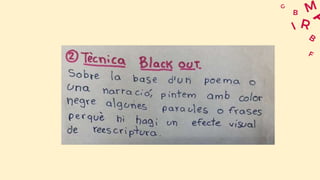 ② Tècnica Black out.
Sobre la base d'un poema o
una narració, pintem amb color
negre algunes paraules o frases
perquè hi hagi un efecte visual
de reescriptura.
G B M
I R
B
F